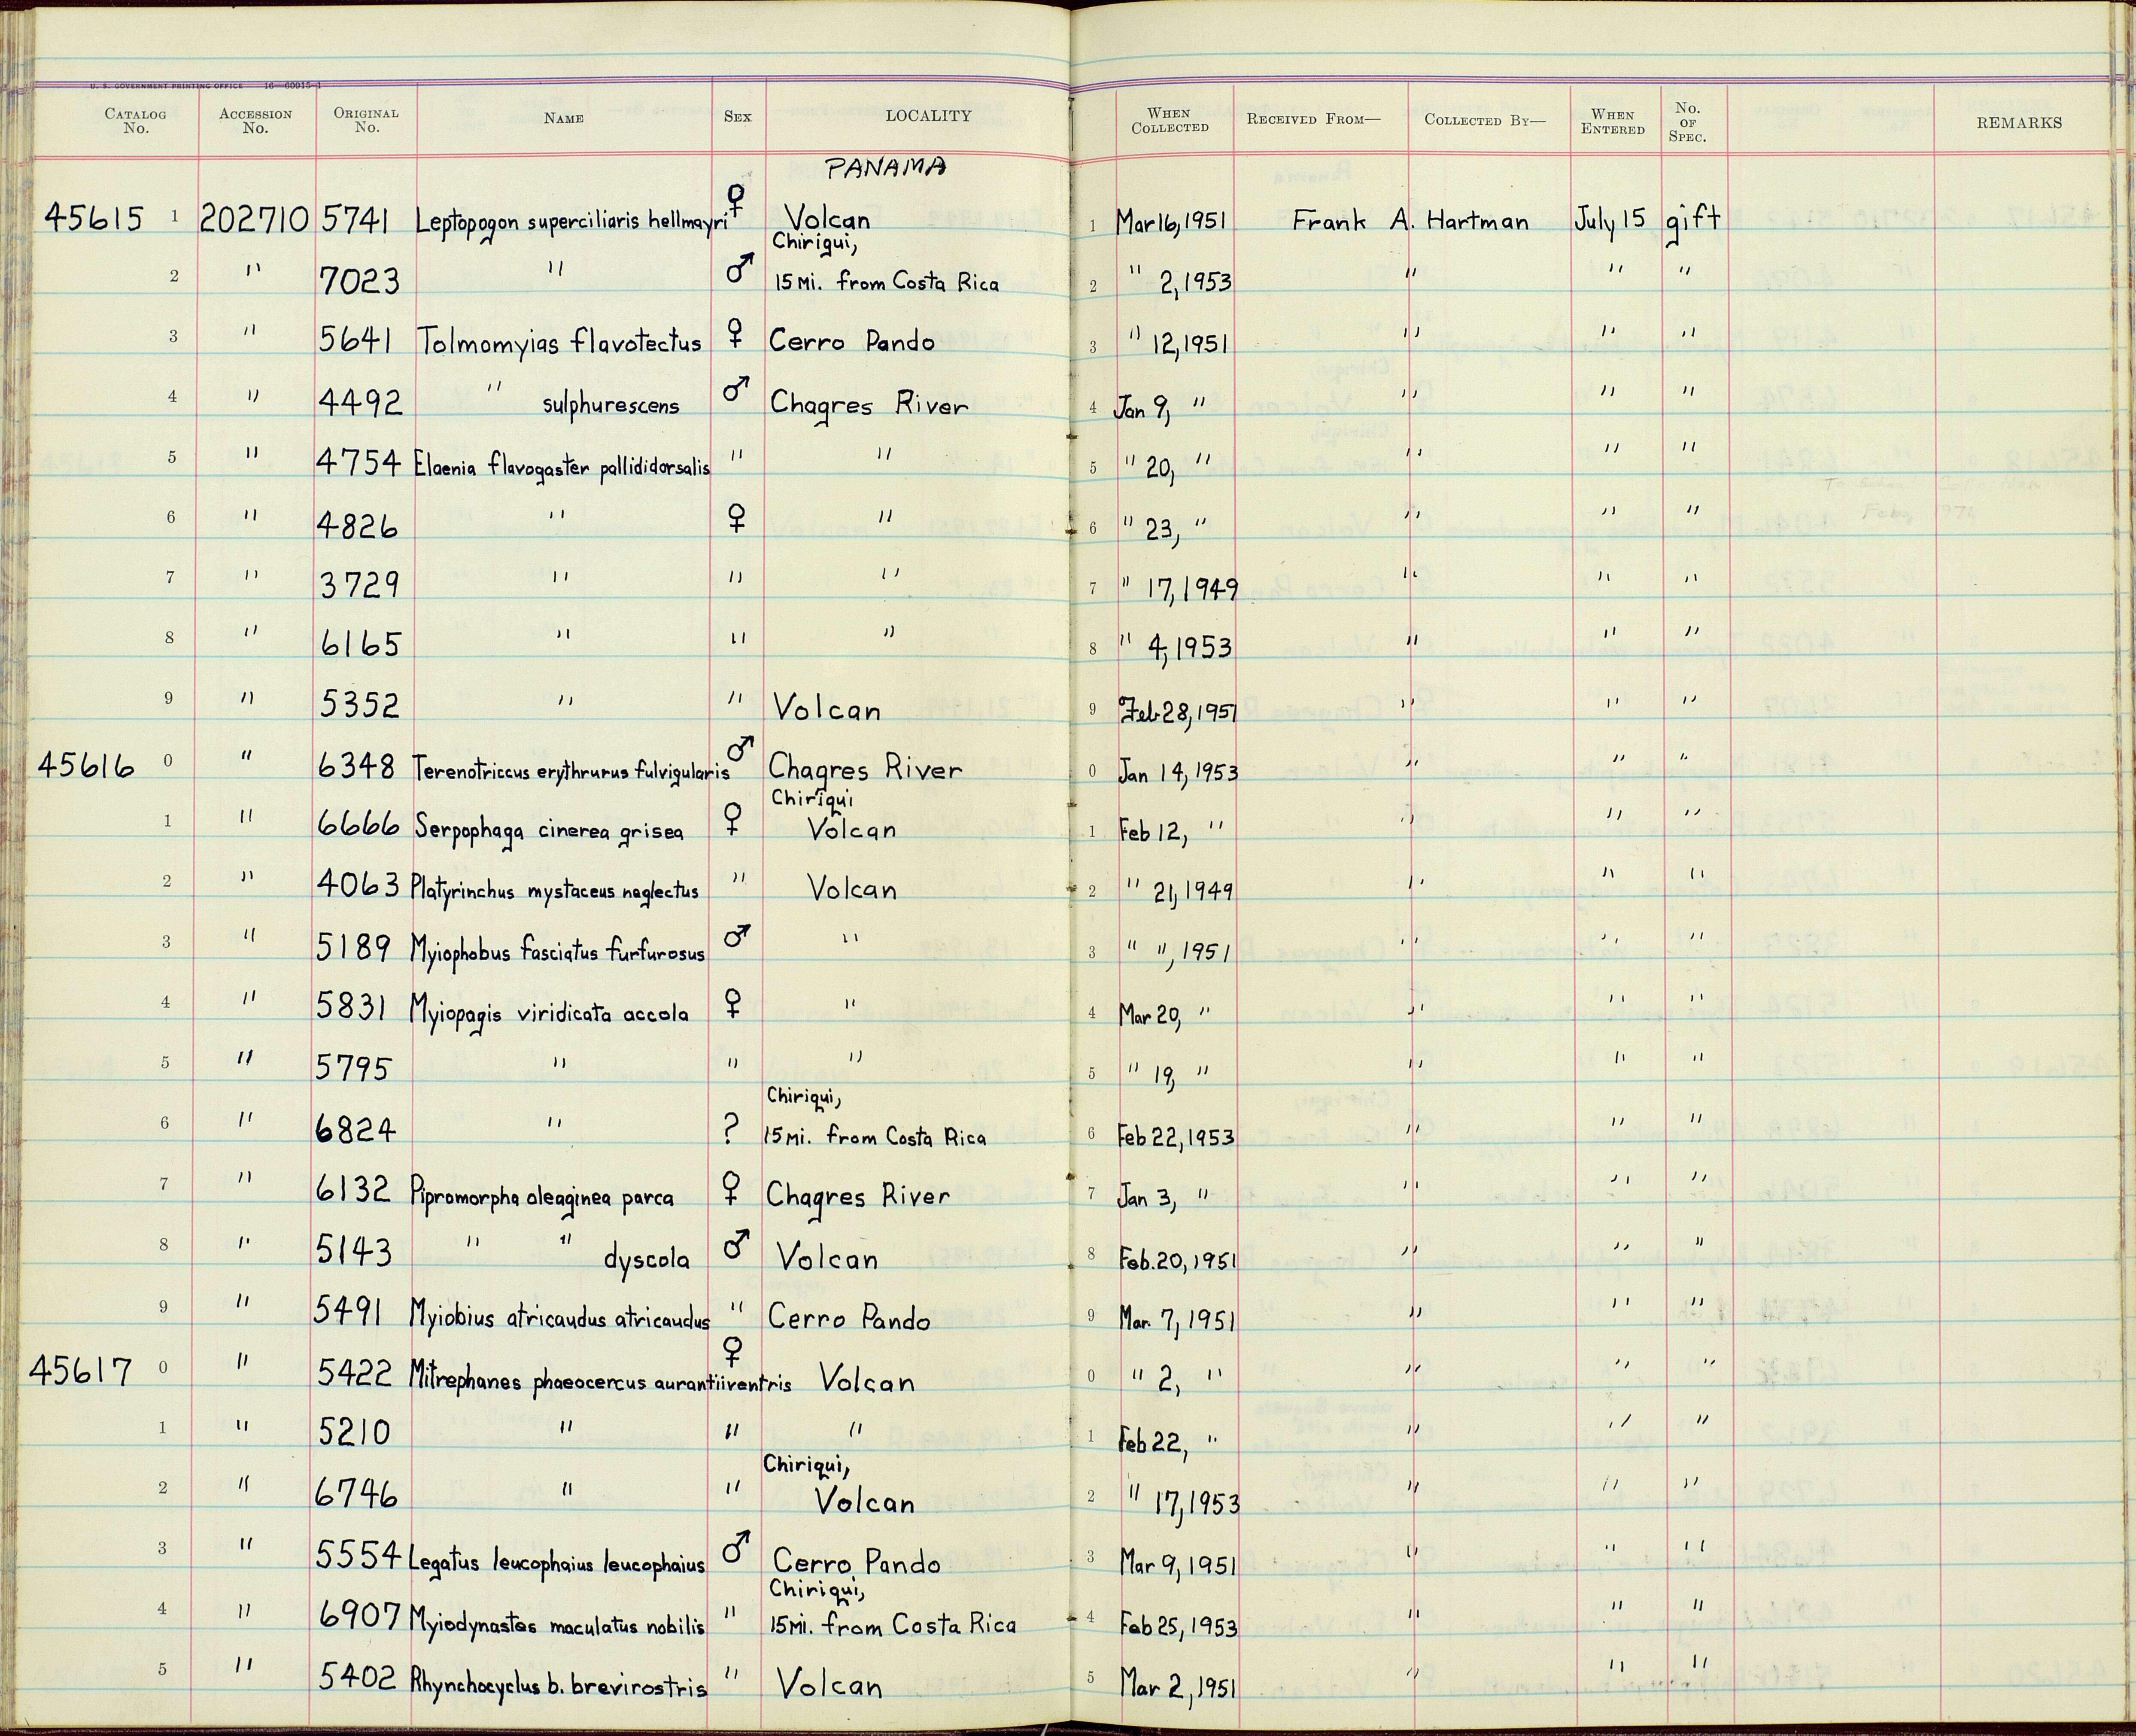 U. S. GOVERNMENT PRINTING OFFICE 16—60915-1
CATALOG No. ACCESSION No. ORIGINAL No. NAME SEX LOCALITY WHEN COLLECTED RECEIVED FROM— COLLECTED BY— WHEN ENTERED No. OF SPEC. REMARKS
PANAMA
45615 1 202710 5741 Leptopogon superciliaris hellmayri ♀ Volcan 1 Mar 16, 1951 Frank A. Hartman July 15 gift
Chiriqui,
2 " 7023 " ♂ 15 Mi. from Costa Rica 2 " 2, 1953 " " "
3 " 5641 Tolmomyias flavotectus ♀ Cerro Pando 3 " 12, 1951 " " "
4 " 4492 " sulphurescens ♂ Chagres River 4 Jan 9, " " " "
5 " 4754 Elaenia flavogaster pallididorsalis " " 5 " 20, " " " "
6 " 4826 " ♀ " 6 " 23, " " " "
7 " 3729 " " " 7 " 17, 1949 " " "
8 " 6165 " " " 8 " 4, 1953 " " "
9 " 5352 " " Volcan 9 Feb 28, 1951 " " "
45616 0 " 6348 Terenotriccus erythrurus fulvigularis ♂ Chagres River 0 Jan 14, 1953 " " "
Chiriqui
1 " 6666 Serpophaga cinerea grisea ♀ Volcan 1 Feb 12, " " " "
2 " 4063 Platyrinchus mystaceus neglectus " Volcan 2 " 21, 1949 " " "
3 " 5189 Myiophobus fasciatus furfurosus ♂ " 3 " ", 1951 " " "
4 " 5831 Myiopagis viridicata accola ♀ " 4 Mar 20, " " " "
5 " 5795 " " " 5 " 19, " " " "
Chiriqui,
6 " 6824 " ? 15 Mi. from Costa Rica 6 Feb 22, 1953 " " "
7 " 6132 Pipromorpha oleaginea parca ♀ Chagres River 7 Jan 3, " " " "
8 " 5143 " " dyscola ♂ Volcan 8 Feb. 20, 1951 " " "
9 " 5491 Myiobius atricaudus atricaudus " Cerro Pando 9 Mar. 7, 1951 " " "
45617 0 " 5422 Mitrephanes phaeocercus aurantiiventris ♀ Volcan 0 " 2, " " " "
1 " 5210 " " " 1 Feb 22, " " " "
Chiriqui,
2 " 6746 " " Volcan 2 " 17, 1953 " " "
3 " 5554 Legatus leucophaius leucophaius ♂ Cerro Pando 3 Mar 9, 1951 " " "
Chiriqui,
4 " 6907 Myiodynastes maculatus nobilis " 15 Mi. from Costa Rica 4 Feb 25, 1953 " " "
5 " 5402 Rhynchocyclus b. brevirostris " Volcan 5 Mar 2, 1951 " " "